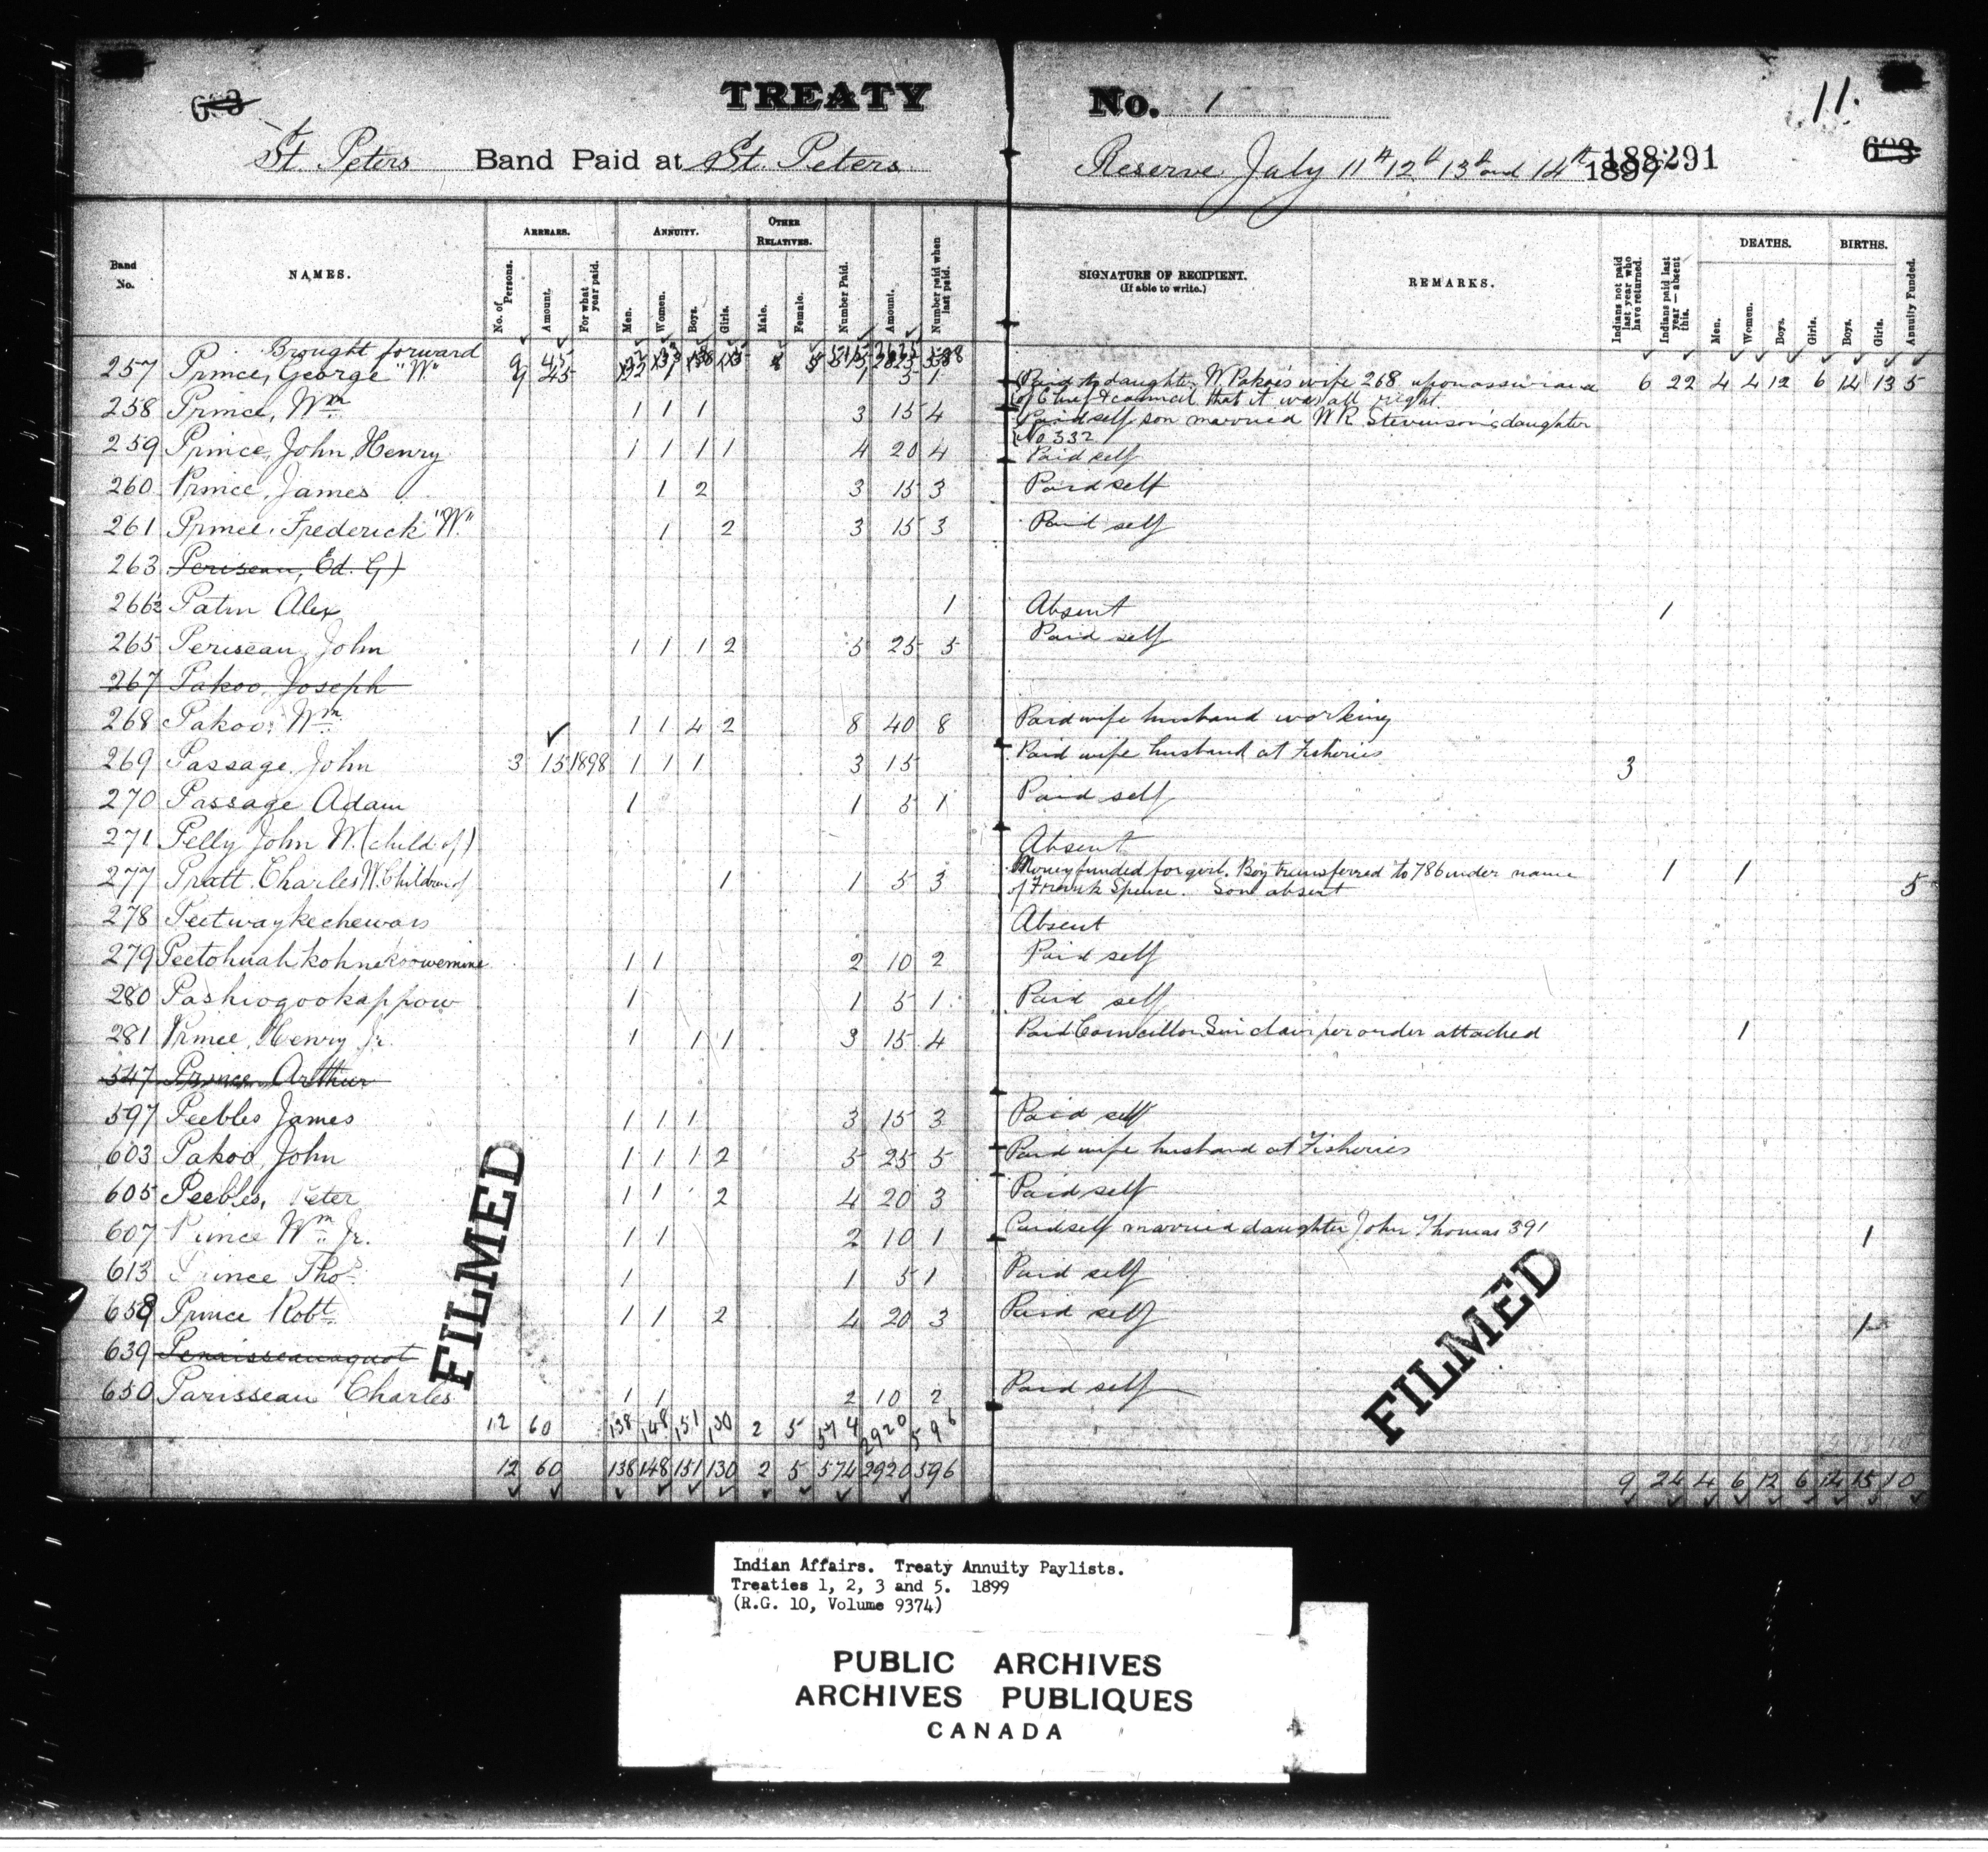 TREATY No. 1
11.
St. Peters Band Paid at St. Peters Reserve July 11th 12th 13th and 14th 1899
188291
Band No.
NAMES.
ARREARS.
No. of Persons.
Amount.
For what year paid.
ANNUITY.
Men.
Women.
Boys.
Girls.
OTHER RELATIVES.
Male.
Female.
Number Paid.
Amount.
Number paid when last paid.
SIGNATURE OF RECIPIENT.
(If able to write.)
REMARKS.
Indians not paid last year who have returned.
Indians paid last year — absent this.
DEATHS.
Men.
Women.
Boys.
Girls.
BIRTHS.
Boys.
Girls.
Annuity Funded.
Brought forward 9 45
6 22 4 4 12 6 14 13 5
257 Prince, George "W." 1 5 1 Paid to daughter, W Pakoo's wife 268 upon assurance
of Chief & council that it was all right
258 Prince, Wm 1 1 1 3 15 4 Paid self son married W R Stevenson's daughter
No 332
259 Prince, John Henry 1 1 1 1 4 20 4 Paid self
260 Prince, James 1 2 3 15 3 Paid self
261 Prince, Frederick "W." 1 2 3 15 3 Paid self
263 Periseau, Ed. G)
266½ Patin Alex 1 Absent 1
265 Periseau, John 1 1 1 2 5 25 5 Paid self
267 Pakoo, Joseph
268 Pakoo, Wm 1 1 4 2 8 40 8 Paid wife husband working
269 Passage, John 3 15 1898 1 1 1 3 15 Paid wife husband at Fisheries 3
270 Passage Adam 1 1 5 1 Paid self
271 Pelly John W. (child of) Absent
277 Pratt, Charles W. Children of 1 1 5 3 Money funded for girl. Boy transferred to 786 under name 1 1 5
of Frank Spence. Son absent
278 Peetwaykechewais Absent
279 1 1 2 10 2 Paid self
280 Pashiogookappow 1 1 5 1 Paid self
281 Prince, Henry Jr. 1 1 1 3 15 4 Paid Councillor Sinclair per order attached 1
547 Prince, Arthur
597 Peebles James 1 1 1 3 15 3 Paid self
603 Pakoo, John 1 1 1 2 5 25 5 Paid wife husband at Fisheries
605 Peebles, Peter 1 1 2 4 20 3 Paid self
607 Prince Wm Jr. 1 1 2 10 1 Paid self married daughter John Thomas 391 1
613 Prince Thos 1 1 5 1 Paid self
Prince Robt. 1 1 2 4 20 3 Paid self 1
639 Penaisseauaquot
650 Parisseau Charles 1 1 2 10 2 Paid self
12 60 138 148 151 130 2 5 574 2920 596
12 60 138 148 151 130 2 5 574 2920 596 9 24 4 6 12 6 14 15 10
FILMED
FILMED
Indian Affairs. Treaty Annuity Paylists.
Treaties 1, 2, 3 and 5. 1899
(R.G. 10, Volume 9374)
PUBLIC ARCHIVES
ARCHIVES PUBLIQUES
CANADA